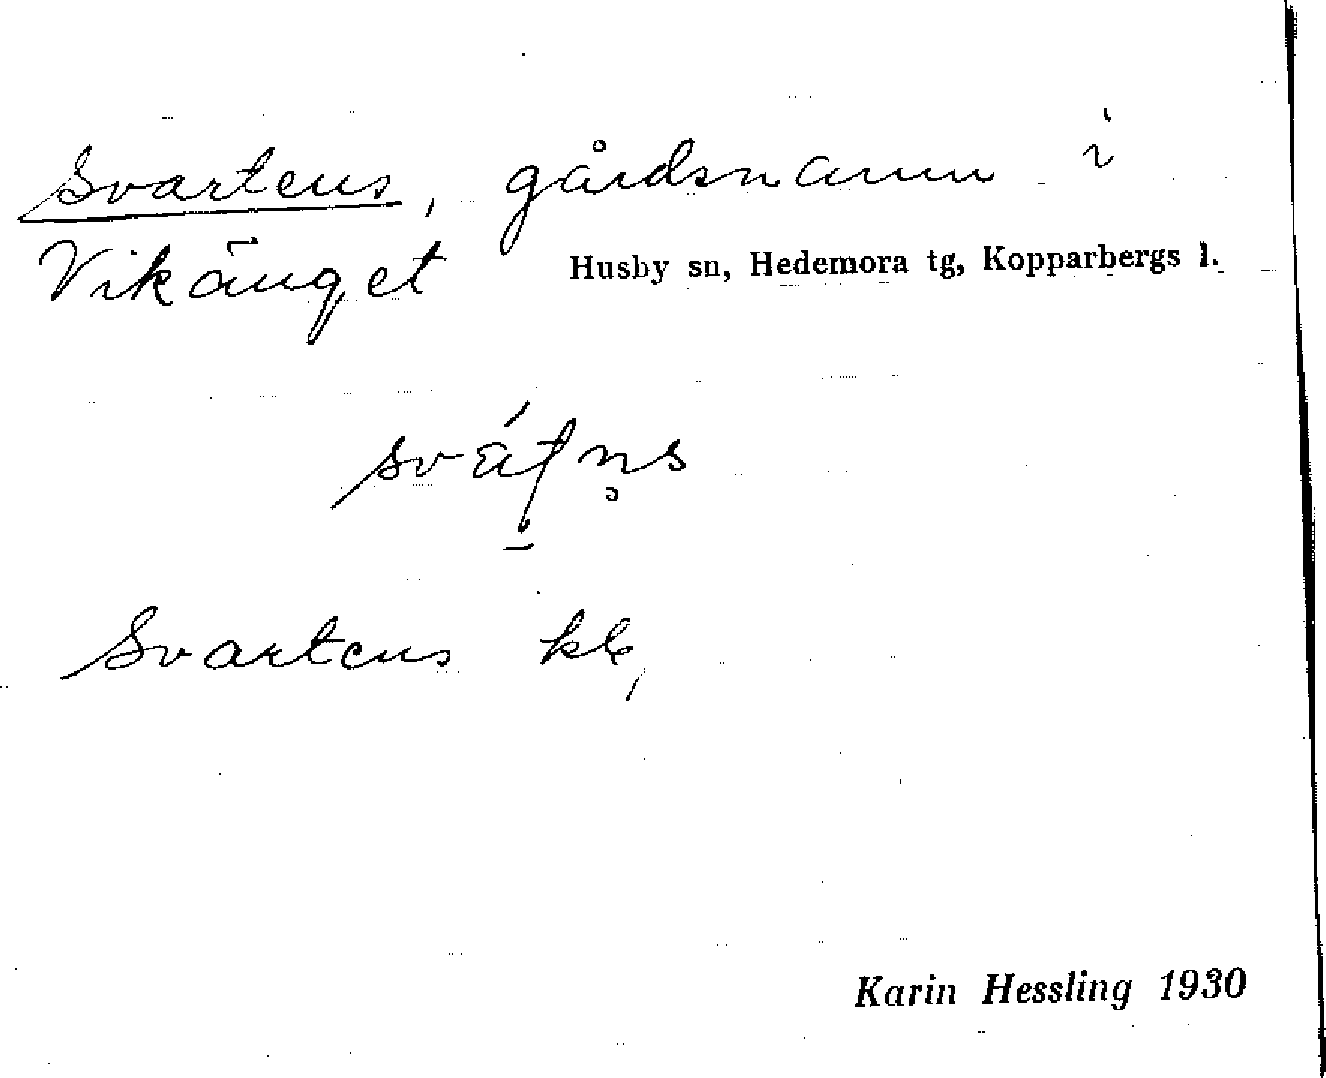 Svartens, gårdsnamn i
Vikänget Husby sn, Hedemora tg, Kopparbergs l.
Svartens
Karin Hessling 1930